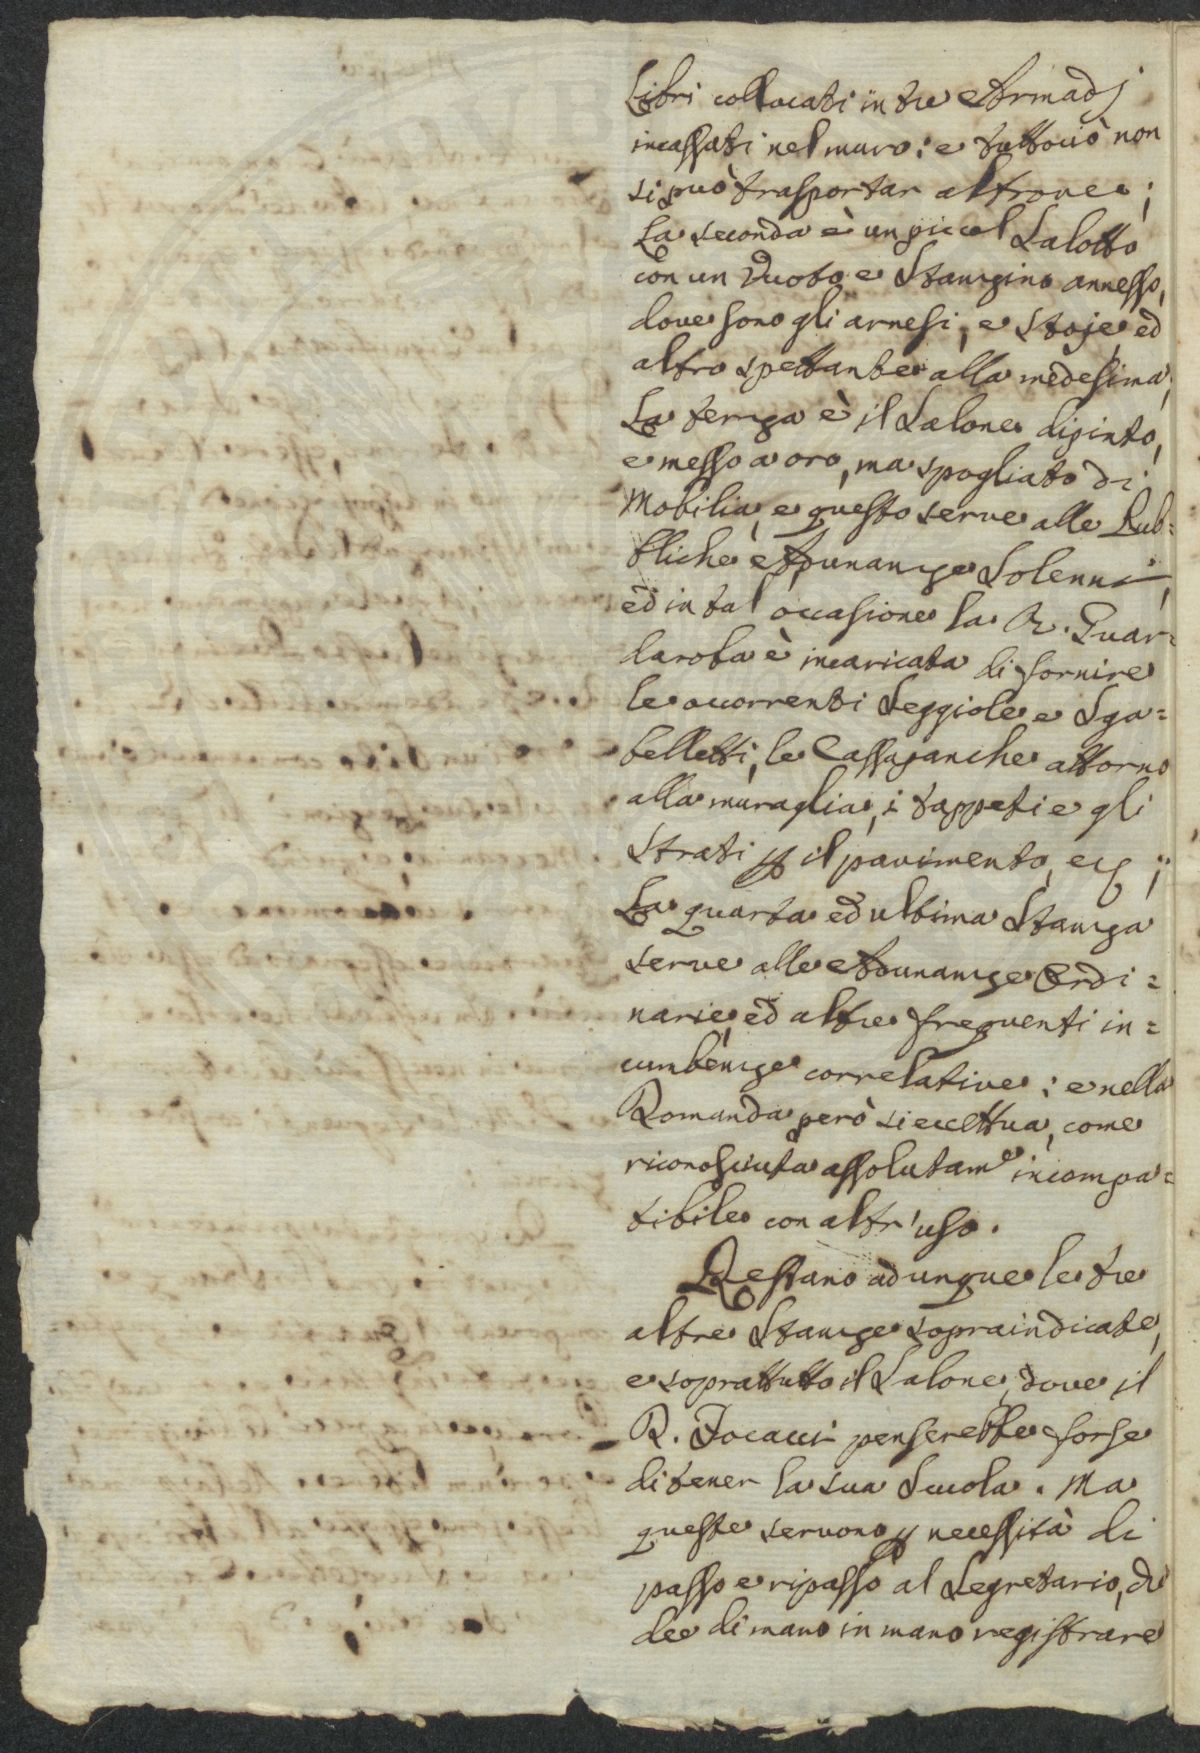 Libri collocati in tre Armadj
incassati nel muro; e tuttociò non
si può trasportar altrove;
La seconda è un piccol Salotto
con un Vuoto e Stanzino annesso,
dove sono gli arnesi, e Stoje, ed
altro spettante alla medesima;
La terza è il Salone dipinto,
e messo a oro, ma spogliato di
Mobilia, e questo serve alle Pub=
bliche Adunanze Solenni,
ed in tal occasione la R. Guar=
daroba è incaricata di fornire
le occorrenti Seggiole e Sga=
belletti, le Cassapanche attorno
alla muraglia, i tappeti e gli
Strati p il pavimento, ec;
La quarta ed ultima Stanza
serve alle Adunanze Ordi=
narie, ed altre frequenti in=
cumbenze correlative; e nella
Romanda però si eccettua, come
riconosciuta assolutam.e incompa=
tibile con altr'uso.
Restano adunque le tre
altre Stanze sopraindicate,
e soprattutto il Salone, dove il
R. Focacci penserebbe forse
di tener la sua Scuola. Ma
queste servono p necessità di
passo e ripasso al Segretario,
dee di mano in mano registrare